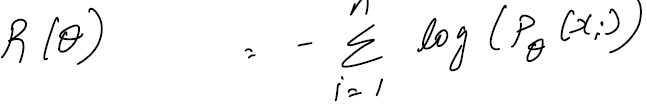 R(θ) = - ∑_{i=1}^{n} log(P_θ(x_i))